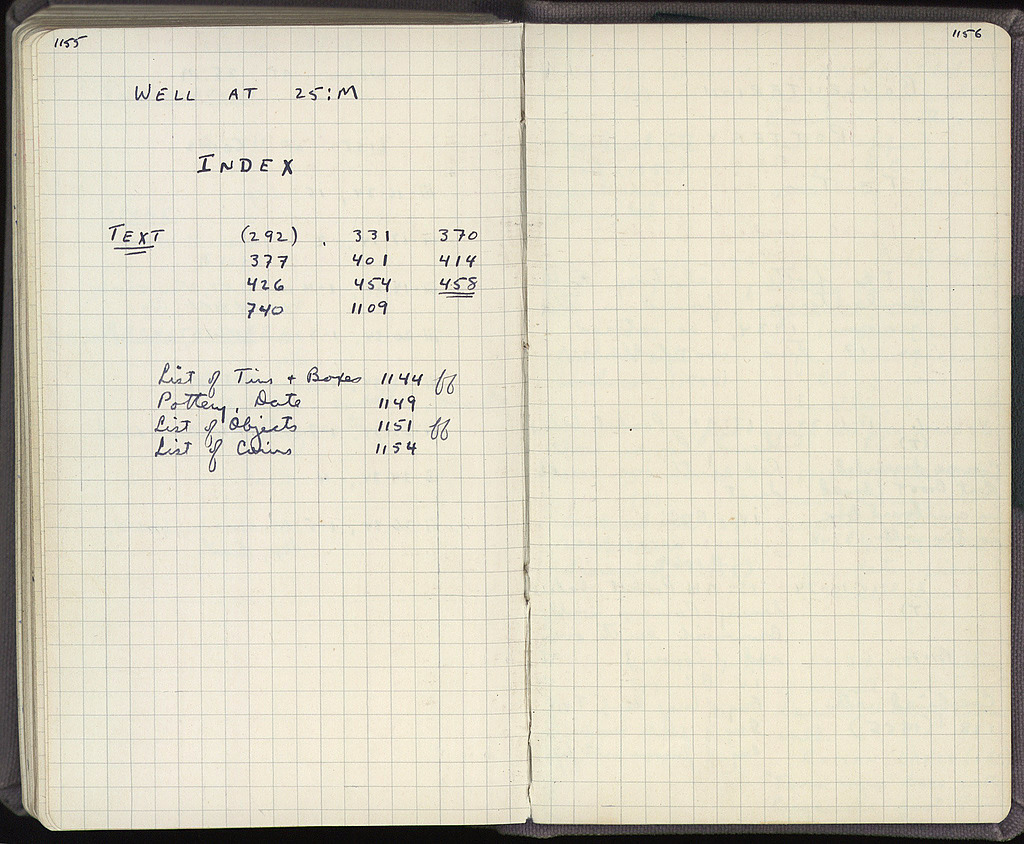 1155
WELL AT 25:M
INDEX
TEXT (292) . 331 370
377 401 414
426 454 458
740 1109
List of Tins + Boxes 1144 ff
Pottery, Date 1149
List of Objects 1151 ff
List of Coins 1154
1156